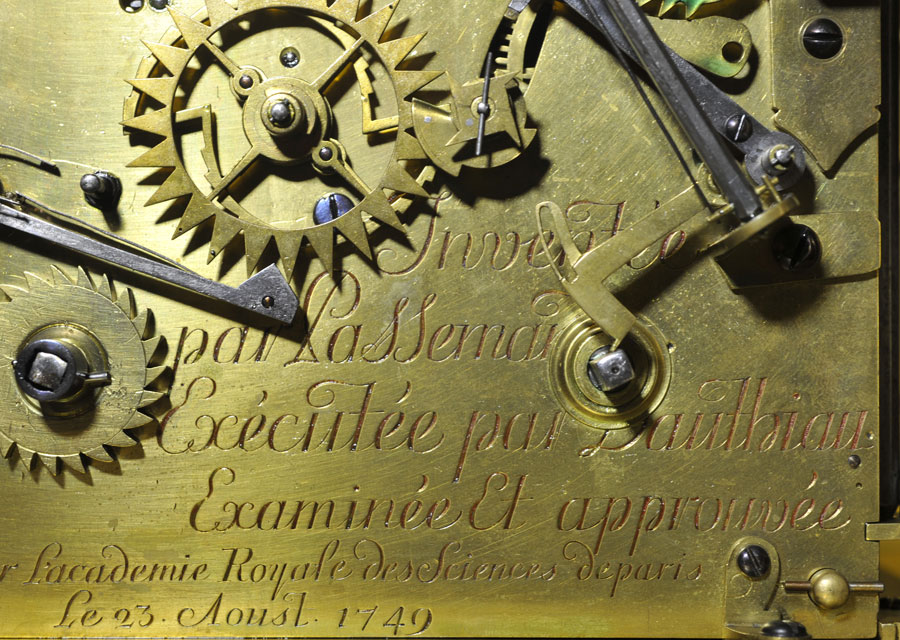 Inventée
par Passema
Exécutée par Dauthiau
Examinée Et approuvée
r L'academie Royale des Sciences de paris
Le 23. Aoust. 1749